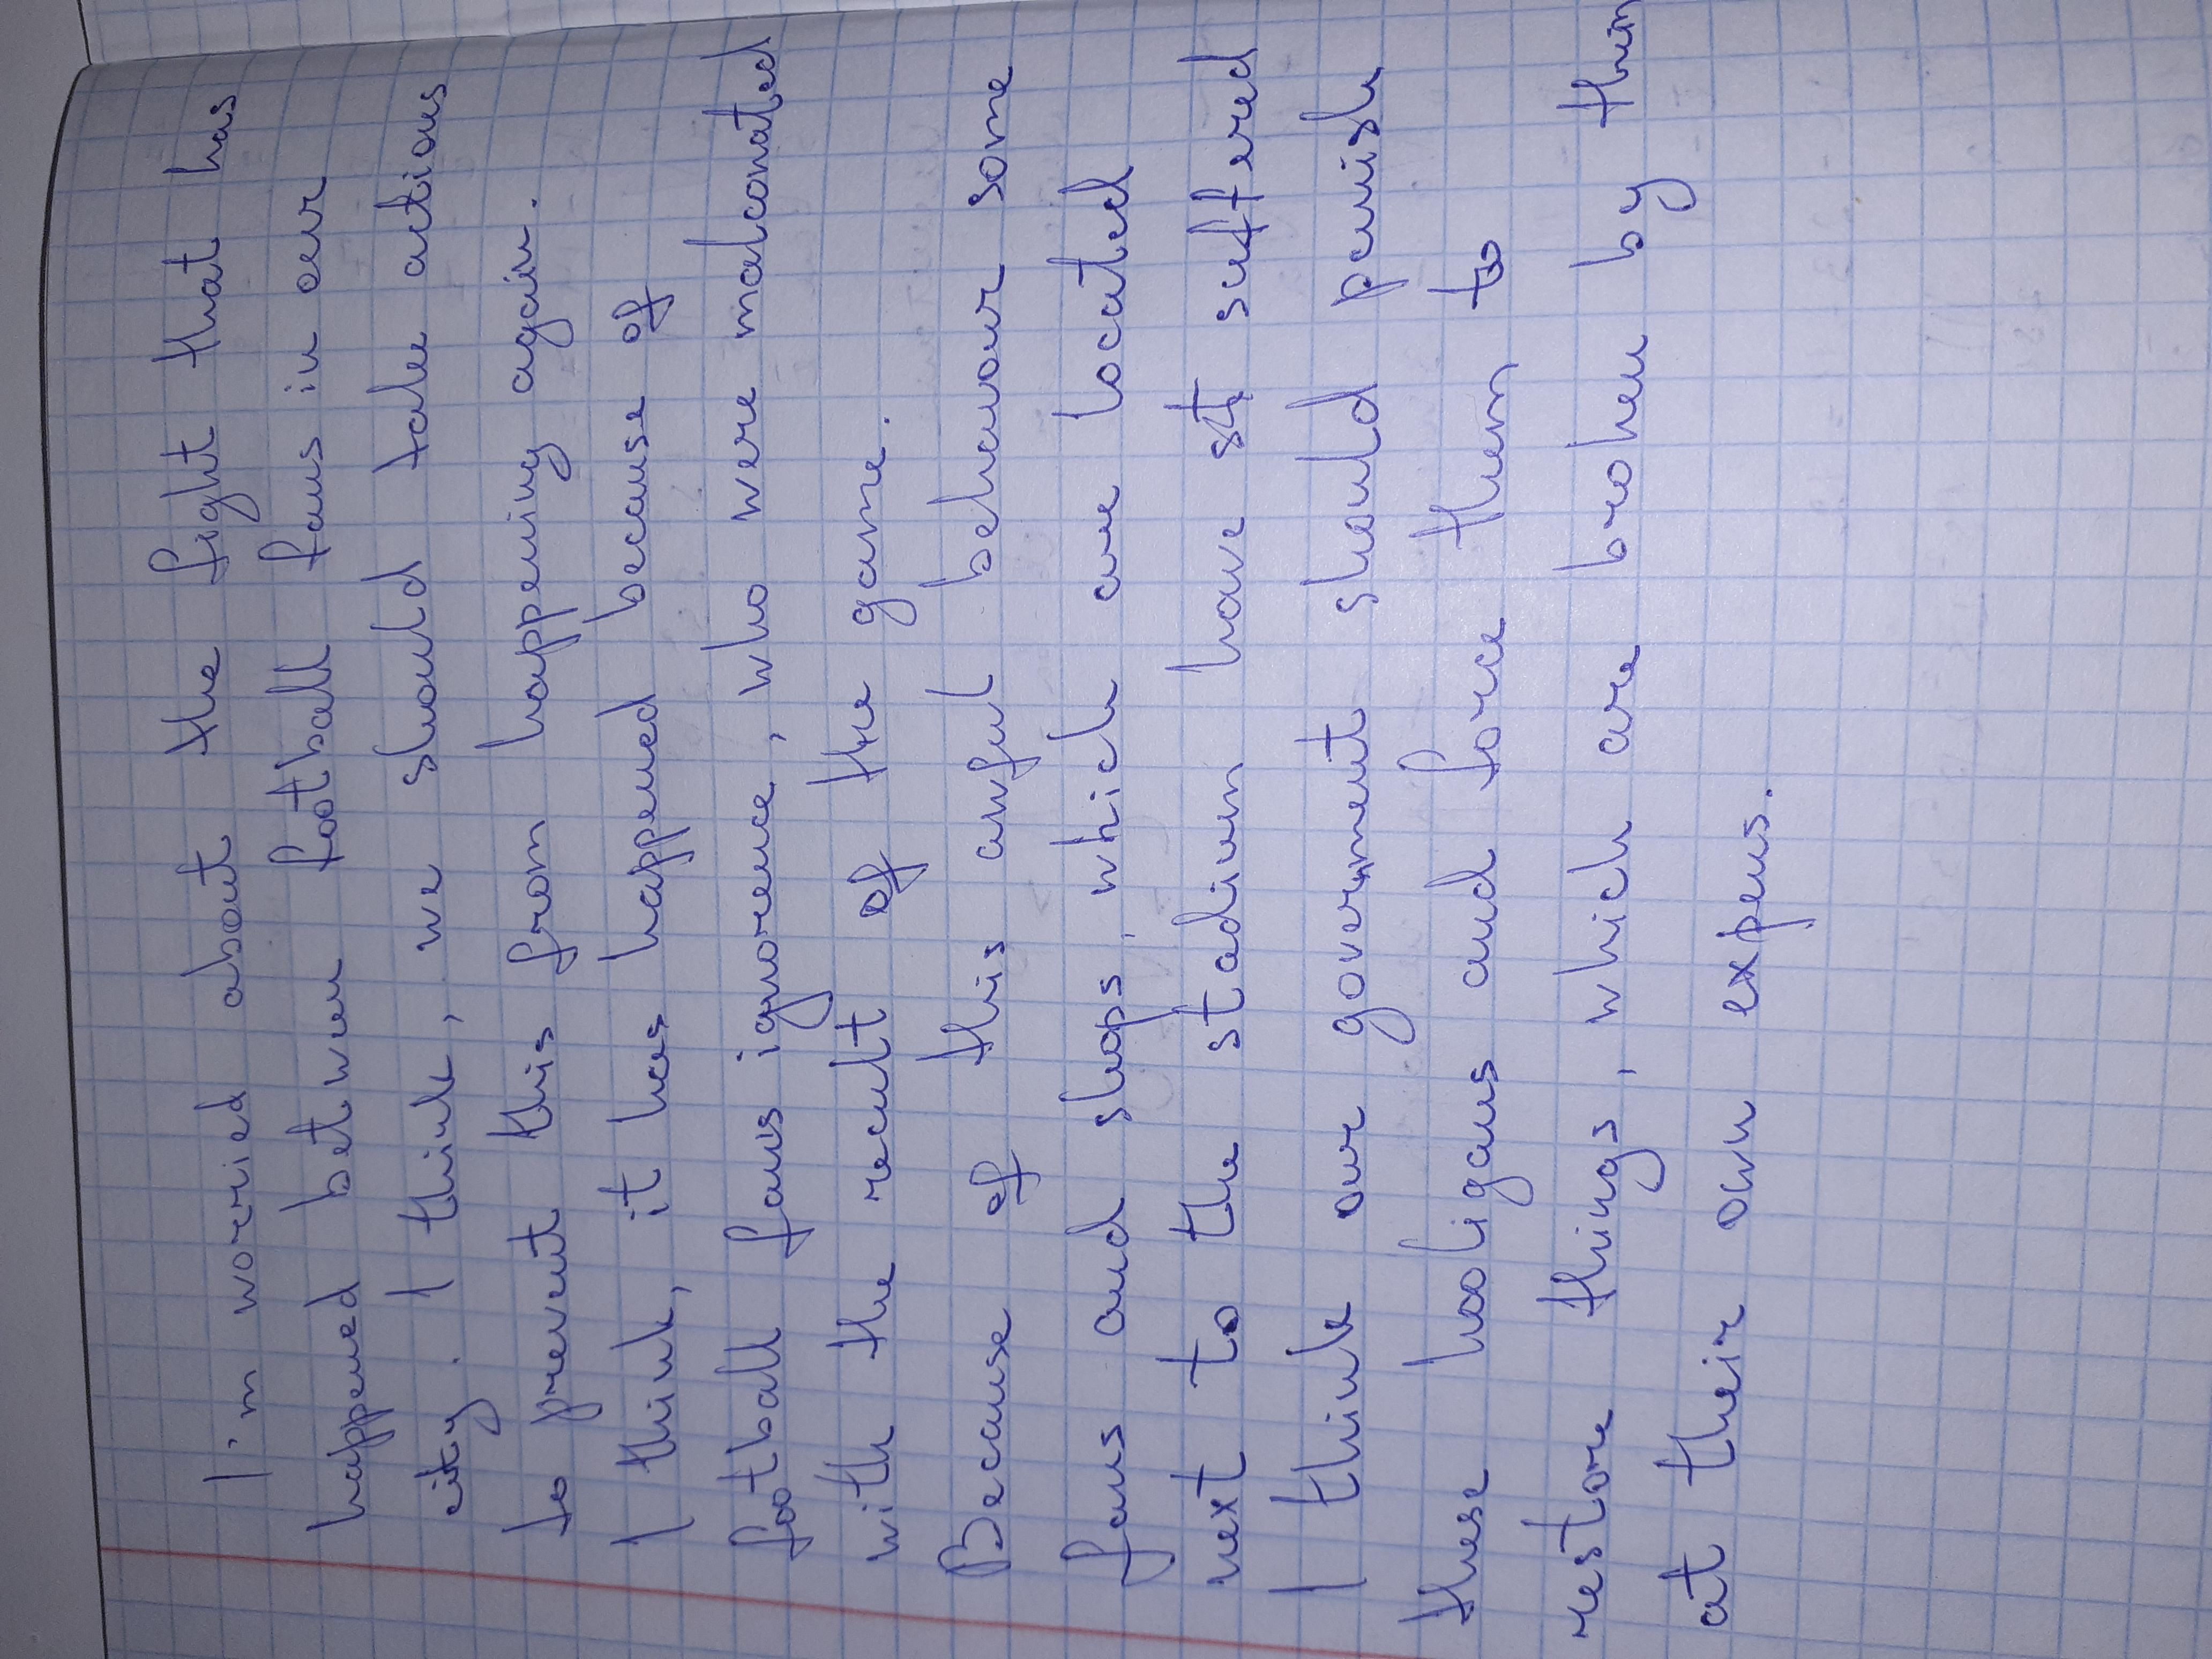 I'm worried about the fight that has
happened betwen football fans in our
city. I think, we should take actions
to prevent this from happening again.
I think, it has happened because of
football fans ignorence, who were malconated
with the recult of the game.
Because of this awful behavour some
fans and shops, which are located
next to the stadium have suffered
I think our government should punish
these hooligans and force them to
restore things, which are broken by thim
at their own expens.